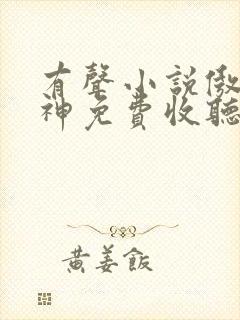 有聲小說傲
神免費收聽
黄姜飯